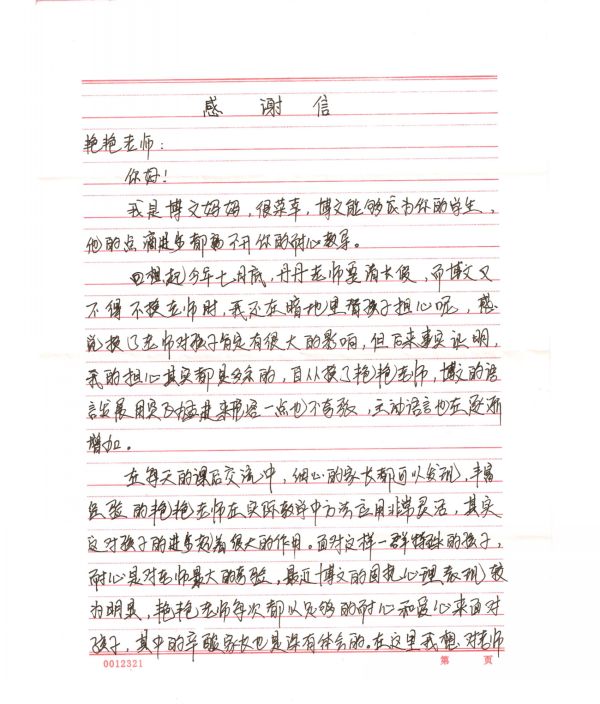 感 谢 信
艳艳老师：
你好！
我是博文妈妈，很荣幸，博文能够成为你的学生，
他的点滴进步都离不开你的耐心教导。
回想起今年七月底，丹丹老师要请长假，而博文又
不得不换老师时，我还在暗地里替孩子担心呢，感
觉换了老师对孩子肯定有很大的影响，但后来事实证明，
我的担心其实都是多余的，自从换了艳艳老师，博文的语
言发展用突飞猛进来形容一点也不夸张，主动语言也在逐渐
增加。
在每天的课后交流中，细心的家长都可以发现，丰富
经验的艳艳老师在实际教学中方法应用非常灵活，其实
这对孩子的进步起着很大的作用。面对这样一群特殊的孩子，
耐心是对老师最大的考验，最近博文的固执心理表现较
为明显，艳艳老师每次都以足够的耐心和爱心来面对
孩子，其中的辛酸家长也是深有体会的。在这里我想对老师
0012321
第 页